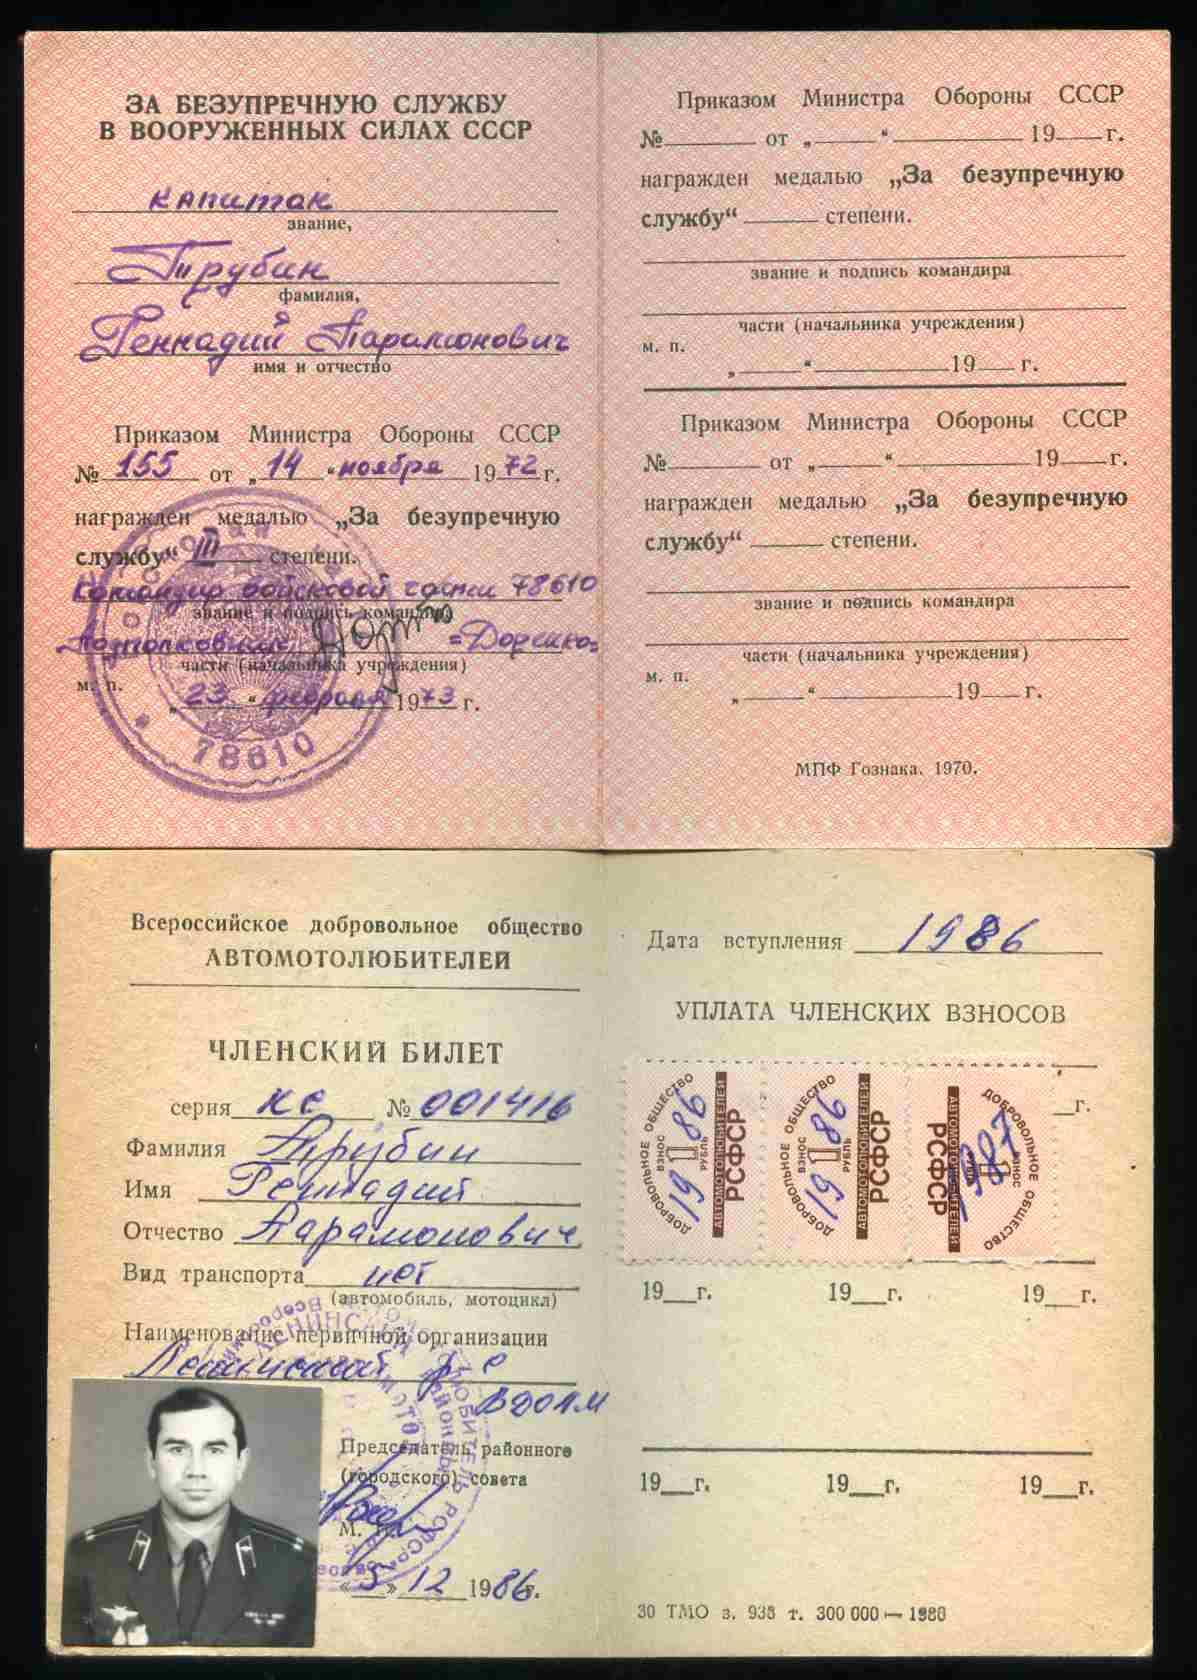 ЗА БЕЗУПРЕЧНУЮ СЛУЖБУ
В ВООРУЖЕННЫХ СИЛАХ СССР
капитан
звание,
Трубин
фамилия,
Геннадий Парамонович
имя и отчество
Приказом Министра Обороны СССР
№ 155 от „14“ ноября 1972 г.
награжден медалью „За безупречную
службу“ III степени.
Командир войсковой части 78610
звание и подпись командира
Подполковник =Доренко=
части (начальника учреждения)
м. п.
„23“ февраля 1973 г.
78610
Приказом Министра Обороны СССР
№ от „ “ 19 г.
награжден медалью „За безупречную
службу“ степени.
звание и подпись командира
части (начальника учреждения)
м. п.
„ “ 19 г.
Приказом Министра Обороны СССР
№ от „ “ 19 г.
награжден медалью „За безупречную
службу“ степени.
звание и подпись командира
части (начальника учреждения)
м. п.
„ “ 19 г.
МПФ Гознака. 1970.
Всероссийское добровольное общество
АВТОМОТОЛЮБИТЕЛЕЙ
ЧЛЕНСКИЙ БИЛЕТ
серия КС № 001416
Фамилия Трубин
Имя Геннадий
Отчество Парамонович
Вид транспорта нет
(автомобиль, мотоцикл)
Наименование первичной организации
Ленинский р-с
ВДОАМ
Председатель районного
(городского) совета
М. П.
«5» 12 1986г.
Дата вступления 1986
УПЛАТА ЧЛЕНСКИХ ВЗНОСОВ
ДОБРОВОЛЬНОЕ ОБЩЕСТВО
АВТОМОТОЛЮБИТЕЛЕЙ
РСФСР
ВЗНОС
1
РУБЛЬ
1986
ДОБРОВОЛЬНОЕ ОБЩЕСТВО
АВТОМОТОЛЮБИТЕЛЕЙ
РСФСР
ВЗНОС
1
РУБЛЬ
1986
ДОБРОВОЛЬНОЕ ОБЩЕСТВО
АВТОМОТОЛЮБИТЕЛЕЙ
РСФСР
ВЗНОС
1987
г.
19__г. 19__г. 19__г.
19__г. 19__г. 19__г.
30 ТМО з. 938 т. 300 000 — 1986